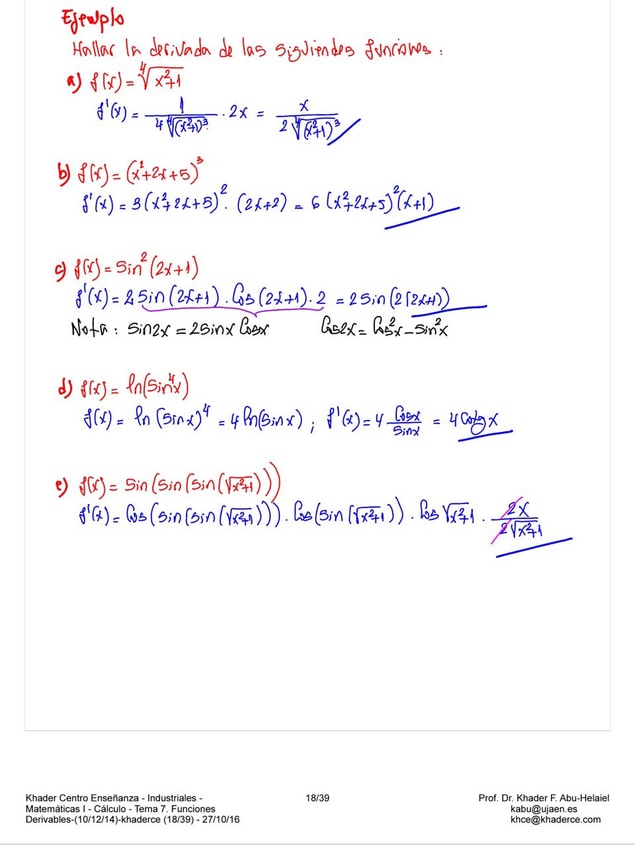 Ejemplo
Hallar la derivada de las siguientes funciones:
a) f(x) = ⁴√(x²+1)
f'(x) = 1/(4 ⁴√(x²+1)³) · 2x = x/(2 ⁴√(x²+1)³)
b) f(x) = (x²+2x+5)³
f'(x) = 3(x²+2x+5)² · (2x+2) = 6(x²+2x+5)²(x+1)
c) f(x) = Sin²(2x+1)
f'(x) = 2 Sin(2x+1) · Cos(2x+1) · 2 = 2 Sin(2(2x+1))
Nota: Sin2x = 2Sinx Cosx Cos2x = Cos²x - Sin²x
d) f(x) = ln(Sin⁴x)
f(x) = ln(Sinx)⁴ = 4 ln(Sinx); f'(x) = 4 Cosx/Sinx = 4 Cotg x
e) f(x) = Sin(Sin(Sin(√(x²+1))))
f'(x) = Cos(Sin(Sin(√(x²+1)))) · Cos(Sin(√(x²+1))) · Cos √(x²+1) · 2x/(2√(x²+1))
Khader Centro Enseñanza - Industriales - 18/39 Prof. Dr. Khader F. Abu-Helaiel
Matemáticas I - Cálculo - Tema 7. Funciones kabu@ujaen.es
Derivables-(10/12/14)-khaderce (18/39) - 27/10/16 khce@khaderce.com